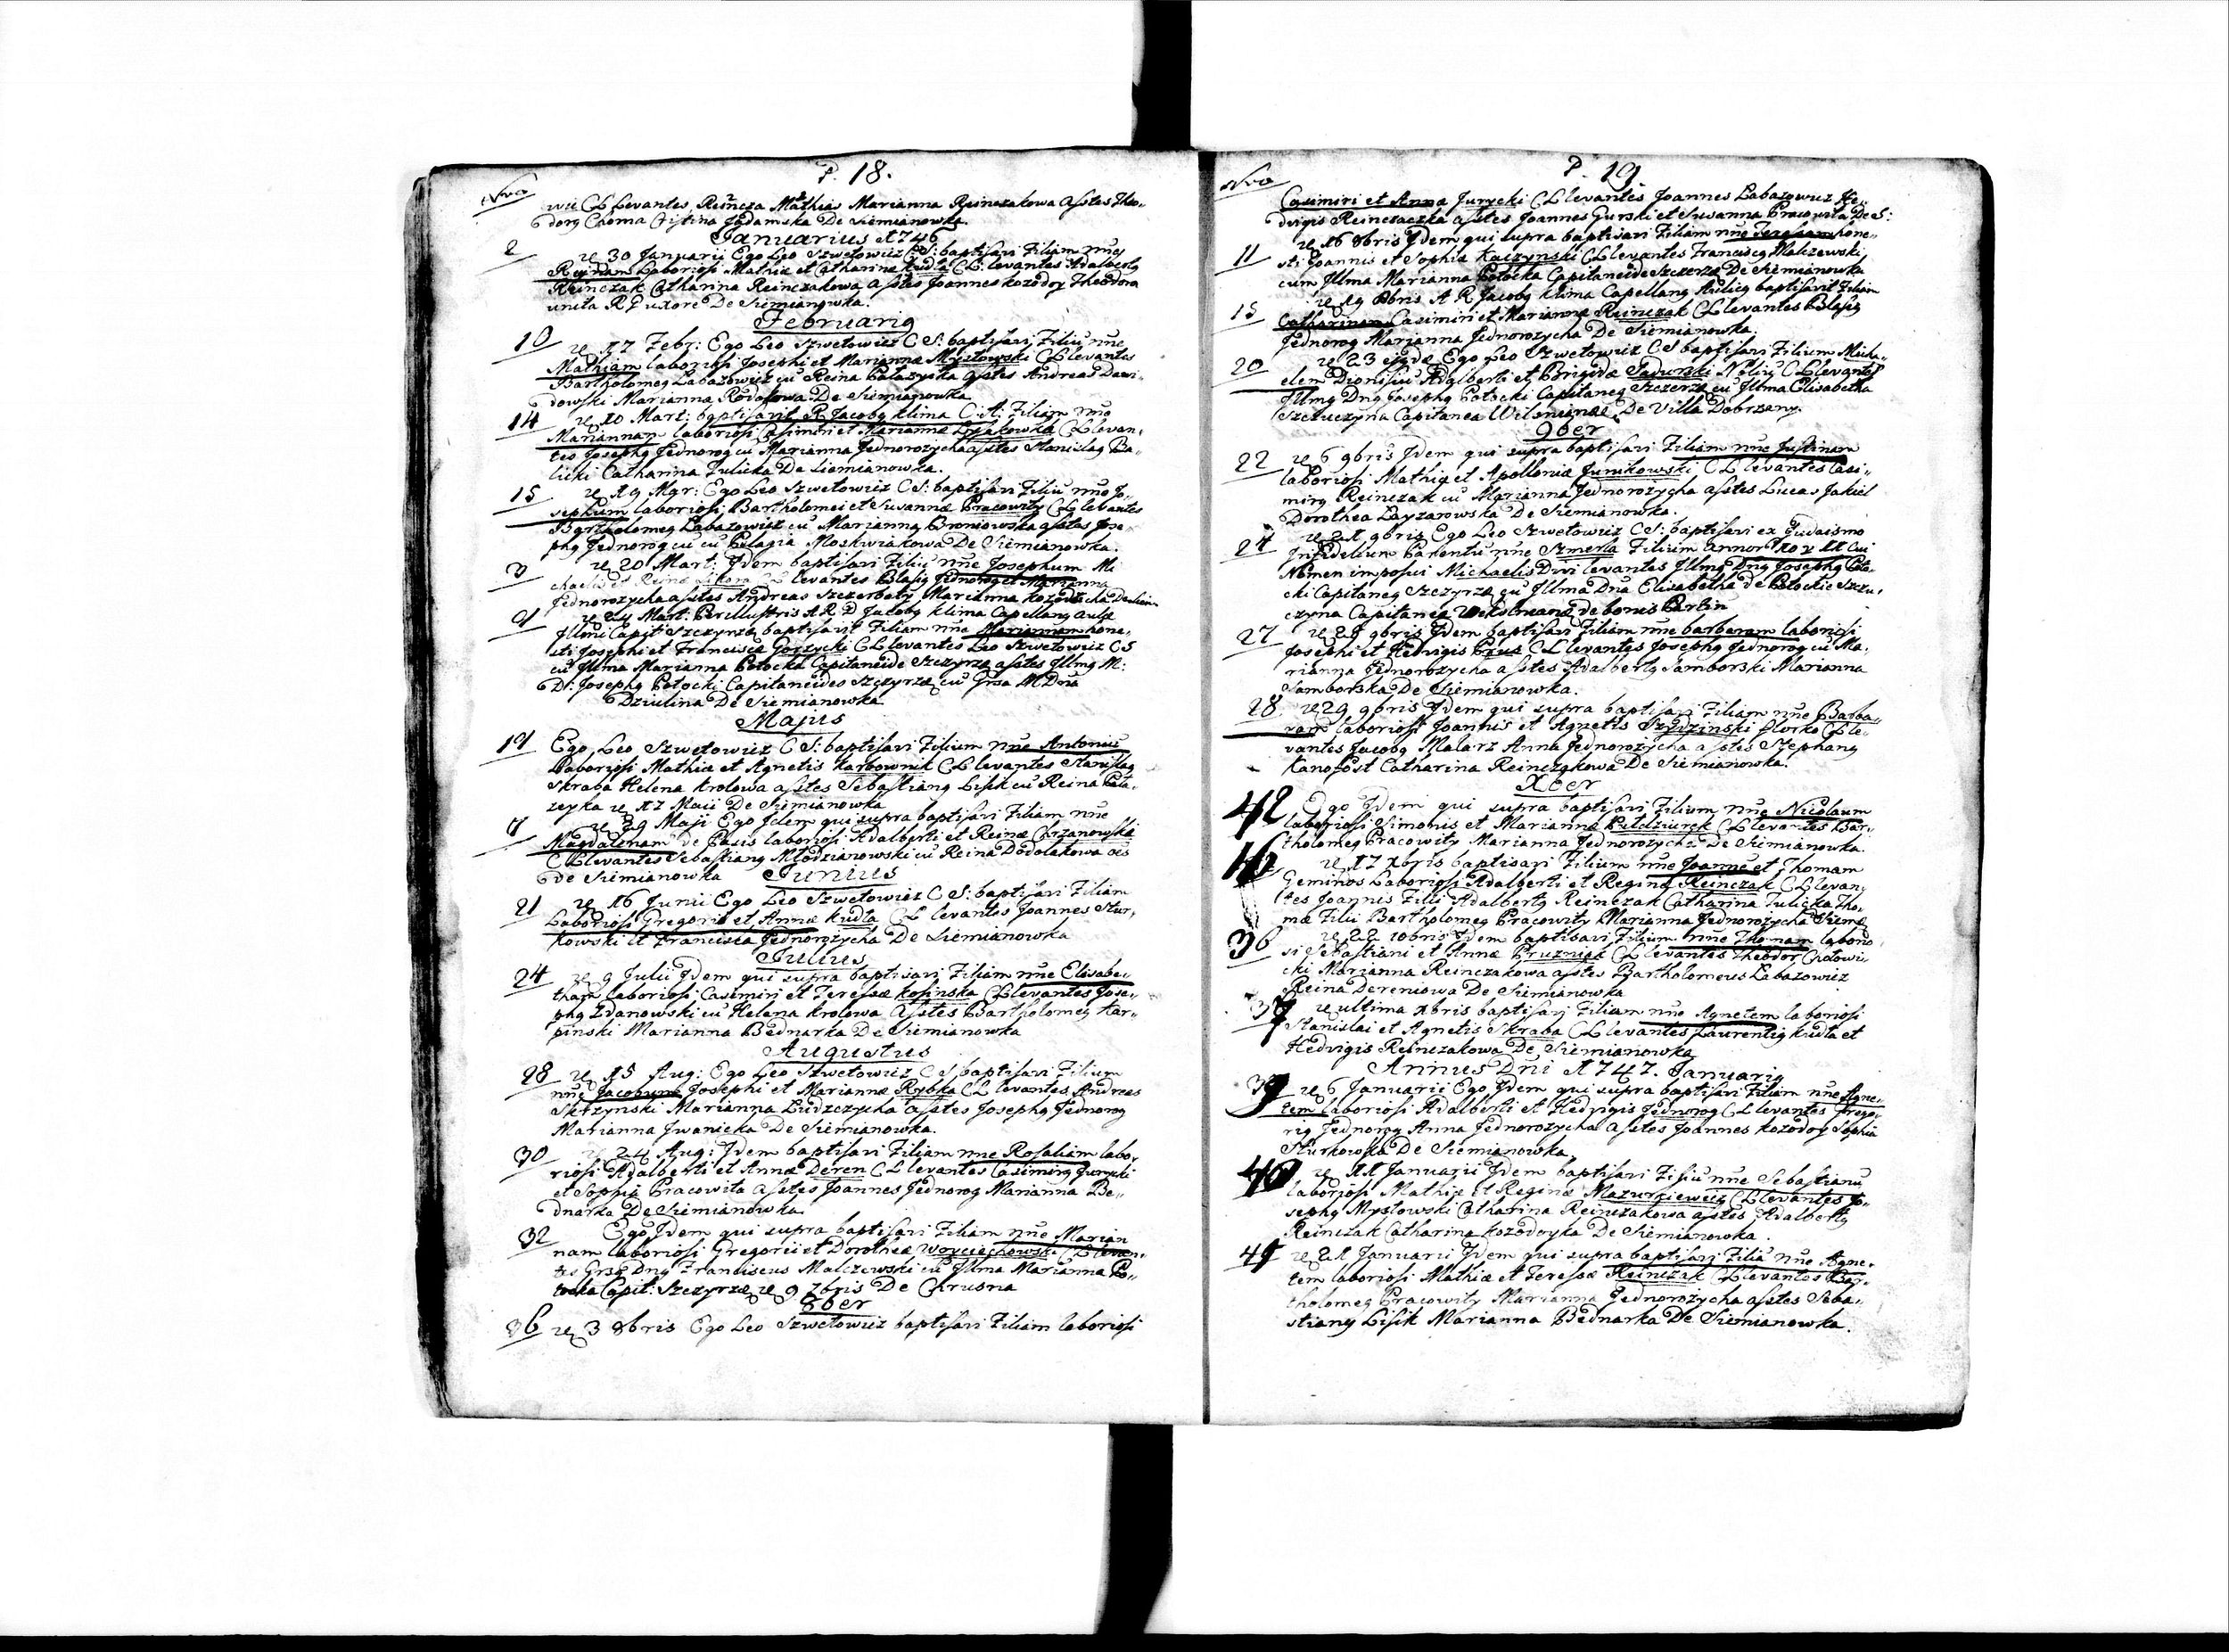 P. 18.
Nro
wii CL Levantes, Reincza Mathias Marianna Reinczakowa asstes Theo„
dorg Choma Cristina Adamska De Siemianowka.
Januarius 1746
2 re 30 Januarii Ego Leo Szwetowicz C S: baptisavi Filiam nne
Reginam Laboriosi Mathiæ et Catharinæ Kudla CL: levantes Adalbertg
Reinczak Catharina Reinczakowa asstes Joannes Kozodoy Theodora
unita R P uxore De Siemianowka.
Februarig
10 re 17 Febr: Ego Leo Szwetowicz C S: baptisavi Filiu nne
Mathiam laboriosi Josephi et Mariannæ Mystowski CL levantes
Bartholomeg Labazowicz cu Reina asstes Andreas Dawi„
dowski Marianna De Siemianowka
14 re 10 Mart: baptisavit R Jacobg Klima C: A: Filiam nne
Mariannam laboriosi Casimiri et Mariannæ CL levan„
tes Josephg Jednorog cu Marianna Jednorozycha asstes Stanislag Ba„
licki Catharina Tulicka De Siemianowka.
15 re 19 Mar: Ego Leo Szwetowicz C S: baptisavi Filiu nne Jo„
sephum laboriosi Bartholomei et Susannæ Pracowity CL levantes
Bartholomeg Labazowicz cu Marianna Broniowska asstes Jose„
phg Jednorog cu Pelagia Moskwiakowa De Siemianowka.
3 re 20 Mart: Idem baptisavi Filiu nne Josephum Mi
chaelis et Reinæ Sikora CL levantes Blasig Jednorog et Marianna
Jednorozycha asstes Andreas Szczerbaty Marianna Kozodoycha De Siem
9 re 24 Mart: Perillustris A. R. D Jacobg Klima Capellang aulæ
Illmi Capit: Szczyrzę baptisavit Filiam nne Mariannam hone„
sti Josephi et Franciscæ Gorzycki CL levantes Leo Szwetowicz C S
cu Illma Marianna Potocka Capitaneide Szczyrzę asstes Illmg M:
D: Josephg Potocki Capitaneides Szczyrzę cu Grsa M Dna
Dziulina De Siemianowka
Majus
19 Ego Leo Szwetowicz C S: baptisavi Filium nne Antoniu
Laboriosi Mathiæ et Agnetis Karbownik CL levantes Stanislag
Skraba Helena Krolowa asstes Sebastiang Lisik cu Reina Pala„
zeyka re 17 Maii De Siemianowka
7 re 29 Maji Ego Idem qui supra baptisavi Filiam nne
Magdalenam de Pasis laboriosi Adalberti et Reinæ Chrzanowski
CL levantes Sebastiang Mlodzianowski cu Reina Dodolakowa oes
de Siemianowka Junius
21 re 16 Junii Ego Leo Szwetowicz C S: baptisavi Filiam
Laboriosi Gregorii et Annæ Kudla CL levantes Joannes Stur„
kowski et Francisca Jednorozycha De Siemianowka
Julius
24 re 9 Julii Idem qui supra baptisavi Filiam nne Elisabe„
tham laboriosi Casimiri et Teresæ Kosinska CL levantes Jose„
phg Zdanowski cu Helena Krolowa Asstes Bartholomeg Kar„
pinski Marianna Bednarka De Siemianowka
Augustus
28 re 15 Aug: Ego Leo Szwetowicz C S baptisavi Filium
nne Jacobum Josephi et Mariannæ Rybka CL levantes Andreas
Skrzynski Marianna Ludzczycha asstes Josephg Jednorog
Marianna Iwanicka De Siemianowka.
30 re 24 Aug: Idem baptisavi Filiam nne Rosaliam labo„
riosi Adalberti et Annæ Deren CL levantes Casimirg Jurycki
et Sophia Pracowita asstes Joannes Jednorog Marianna Be„
dnarka De Siemianowka
32 Ego Idem qui supra baptisavi Filiam nne Marian
nam laboriosi Gregorii et Dorotheæ Woyciechowski CL levan„
tes Grsg Dng Franciscus Malczewski cu Illma Marianna Po„
tocka Capit: Szczyrzę re 9 7bris De Chrusna
8ber
36 re 3 8bris Ego Leo Szwetowicz baptisavi Filiam laboriosi
P. 19
Nro
Casimiri et Anna Jurycki CL levantes Joannes Labazowicz He„
dvigis Reinczaczka asstes Joannes Gurski et Susanna Pracowita De S:
11 re 16 8bris Idem qui supra baptisavi Filiam nne Teresiam hone„
sti Joannis et Sophiæ Kaczynski CL levantes Franciscg Malczewski
cum Illma Marianna Potocka Capitaneide Szczerzę De Siemianowka
15 re 19 8bris A R Jacobg Klima Capellang Aulicg baptisavit Filiam
Catharinam Casimiri et Mariannæ Reinczak CL levantes Blasig
Jednorog Marianna Jednorozycha De Siemianowka.
20 re 23 ejusdæ Ego Leo Szwetowicz C S baptisavi Filium Micha„
elem Dionisiu Adalberti et Brigidæ Tadurski Nbliu CL levantes
Illmg Dng Josephg Potocki Capitaneg Szczerzę cu Illma Elisabetha
Szczuczyna Capitanea Wilsmianæ De Villa Dobrzany.
9ber
22 re 6 9bris Idem qui supra baptisavi Filiam nne Justinam
laboriosi Mathiæ et Apolloniæ Junikowski CL levantes Casi„
mirg Reinczak cu Marianna Jednorozycha asstes Lucas Jakiel
Dorothea Layzarowska De Siemianowka.
24 re 21 9bris Ego Leo Szwetowicz C S: baptisavi ex Judaismo
Infidelium Parentu nne Szmerla Filium annor 10 v 11 Cui
Nomen imposui Michaelis Divi levantes Illmg Dng Josephg Poto„
cki Capitaneg Szczyrzę cu Illma Dna Elisabetha de Potockie Szczu„
czyna Capitanea de bonis Barbin
27 re 28 9bris Idem baptisavi Filiam nne barbaram laboriosi
Josephi et Hedvigis Prus CL levantes Josephg Jednorog cu Ma„
rianna Jednorozycha asstes Adalbertg Samborski Marianna
Samborska De Siemianowka.
28 re 29 9bris Idem qui supra baptisavi Filiam nne Barba„
ram laboriosi Joannis et Agnetis Szydzinski CL le„
vantes Jacobg Malarz Anna Jednorozycha asstes Stephang
Kanofost Catharina Reinczakowa De Siemianowka.
Xber
42 Ego Idem qui supra baptisavi Filium nne Nicolaum
laboriosi Simonis et Mariannæ CL levantes Bar„
tholomeg Pracowity Marianna Jednorozycha De Siemianowka.
re 17 Xbris baptisavi Filium nne Joanne et Thomam
Geminos Laboriosi Adalberti et Reginæ Reinczak CL levan„
tes Joannis Filii Adalbertg Reinczak Catharina Tulicka Tho„
mæ Filii Bartholomeg Pracowity Marianna Jednorozycha Siemę
36 re 22 10bris Idem baptisavi Filium nne Thomam laborio
si Sebastiani et Annæ Pruzniak CL levantes Theodor Chotowi„
cki Marianna Reinczakowa asstes Bartholomeus Labazowicz
Reina Dereniowa De Siemianowka
37 re ultima Xbris baptisavi Filiam nne Agnetem laboriosi
Stanislai et Agnetis Skraba CL levantes Laurentig Kudla et
Hedvigis Reinczakowa De Siemianowka
Annus Dni 1747. Januarig
39 re 6 Januarii Ego Idem qui supra baptisavi Filiam nne Agne„
tem laboriosi Adalberti et Hedvigis Jednorog CL levantes Grego„
rig Jednorog Anna Jednorozycha Asstes Joannes Kozodoy Sophia
Sturkowska De Siemianowka.
40 re 11 Januarii Idem baptisavi Filiu nne Sebastianu
laboriosi Mathiæ et Reginæ Mazurkiewicz CL levantes Jo„
sephg Mystowski Catharina Reinczakowa asstes Adalbertg
Reinczak Catharina Kozodoyka De Siemianowka.
41 re 21 Januarii Idem qui supra baptisavi Filia nne Agne„
tem laboriosi Mathiæ et Teresæ Reinczak CL levantes Bar„
tholomeg Pracowity Marianna Jednorozycha asstes Seba„
stiang Lisik Marianna Bednarka De Siemianowka.